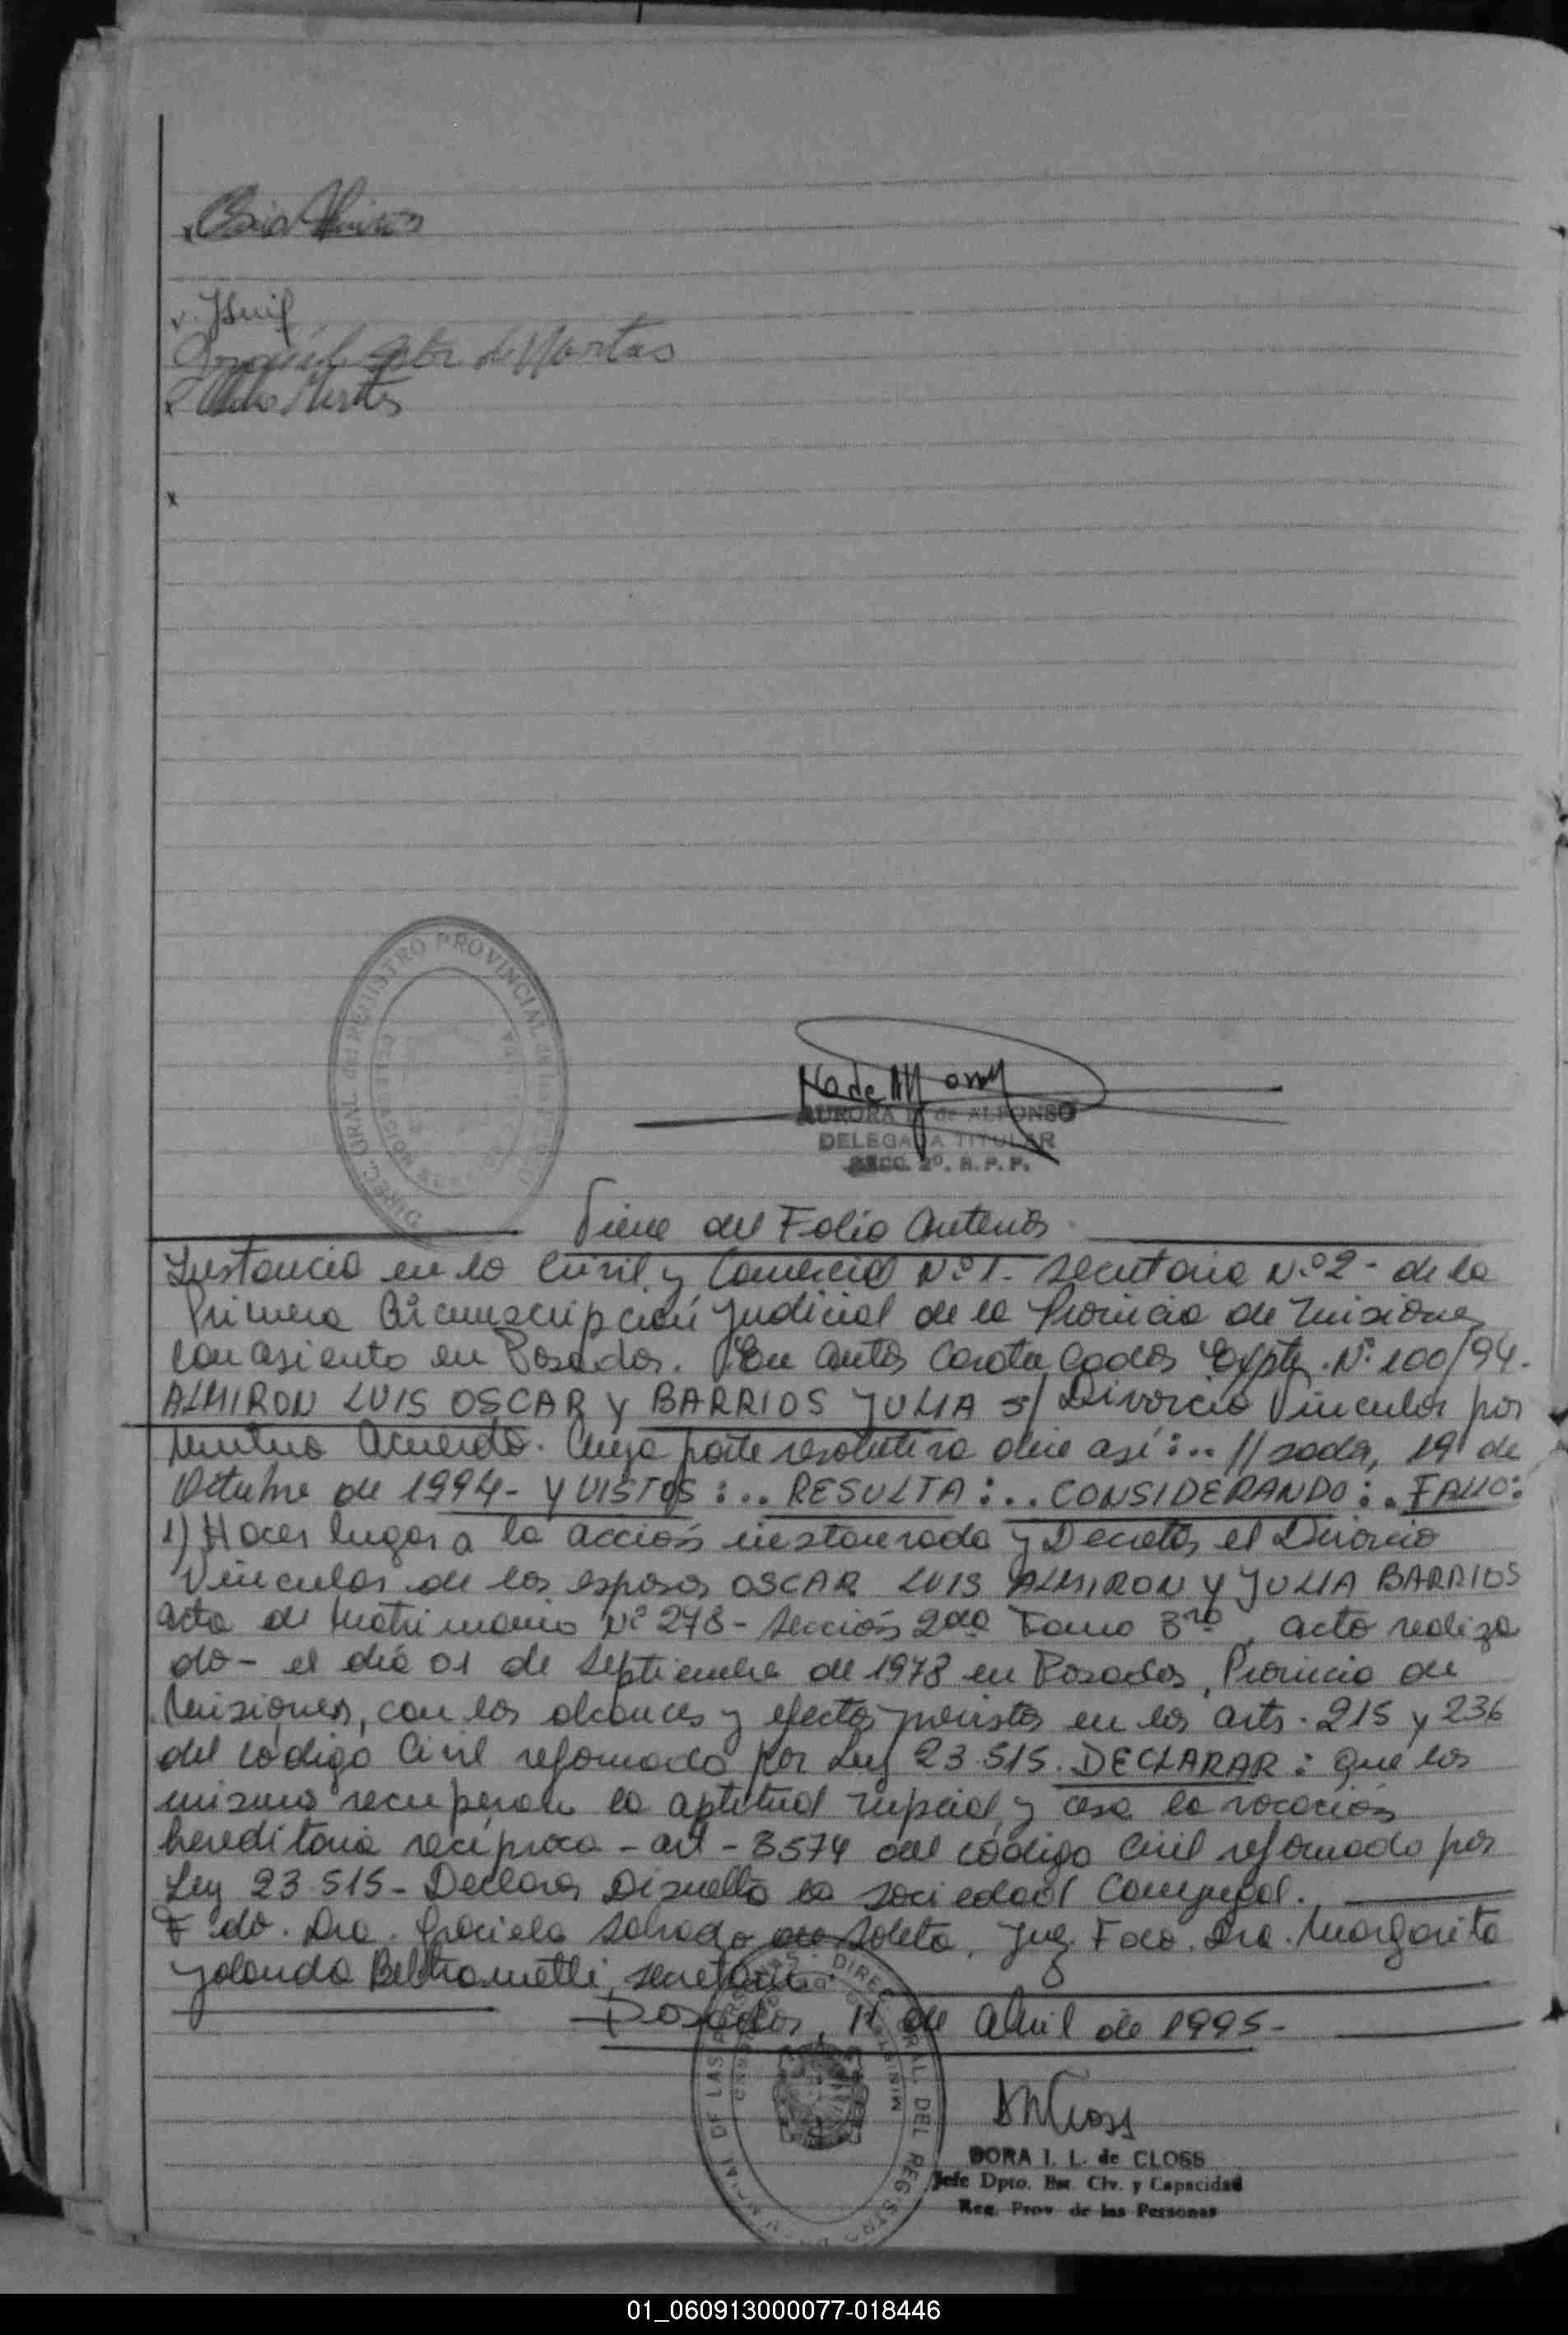 x
DIREC. GRAL. del REGISTRO PROVINCIAL de las
AURORA de ALFONSO
DELEGADA TITULAR
SECC. 2º. R. P. P.
Viene del Folio Anterior
Instancia en lo Civil y Comercial N.º 1. Secretaria N.º 2 - de la
Primera Circunscripción Judicial de la Provincia de Misiones
con asiento en Posadas. En Autos Caratulados Expte. N.º 100/94.
ALMIRON LUIS OSCAR Y BARRIOS JULIA s/ Divorcio Vincular por
Mutuo Acuerdo. Cuya parte resolutiva dice así:.. //sadas, 19 de
Octubre de 1994 - Y VISTOS:.. RESULTA:.. CONSIDERANDO:. FALLO:
1) Hacer lugar a la acción instaurada y Decretar el Divorcio
Vincular de los esposos OSCAR LUIS ALMIRON Y JULIA BARRIOS
acta de Matrimonio N.º 278 - Sección 2da Tomo 3ro, acto realiza
do - el día 01 de Septiembre de 1978 en Posadas, Provincia de
Misiones, con los alcances y efectos previstos en los arts. 215 y 236
del Código Civil reformado por Ley 23.515. DECLARAR: Que los
mismos recuperan la aptitud nupcial, y cesa la vocación
hereditaria recíproca - art - 3574 del código Civil reformado por
Ley 23.515 - Declarar Disuelta la Sociedad Conyugal.
Fdo. Dra. Graciela Salvado de Sotelo, Juez. Fdo. Dra. Margarita
Yolanda Beltrametti, secretaria
Posadas, 11 de Abril de 1995-
DORA I. L. de CLOSS
Jefe Dpto. Est. Civ. y Capacidad
Reg. Prov. de las Personas
01_060913000077-018446